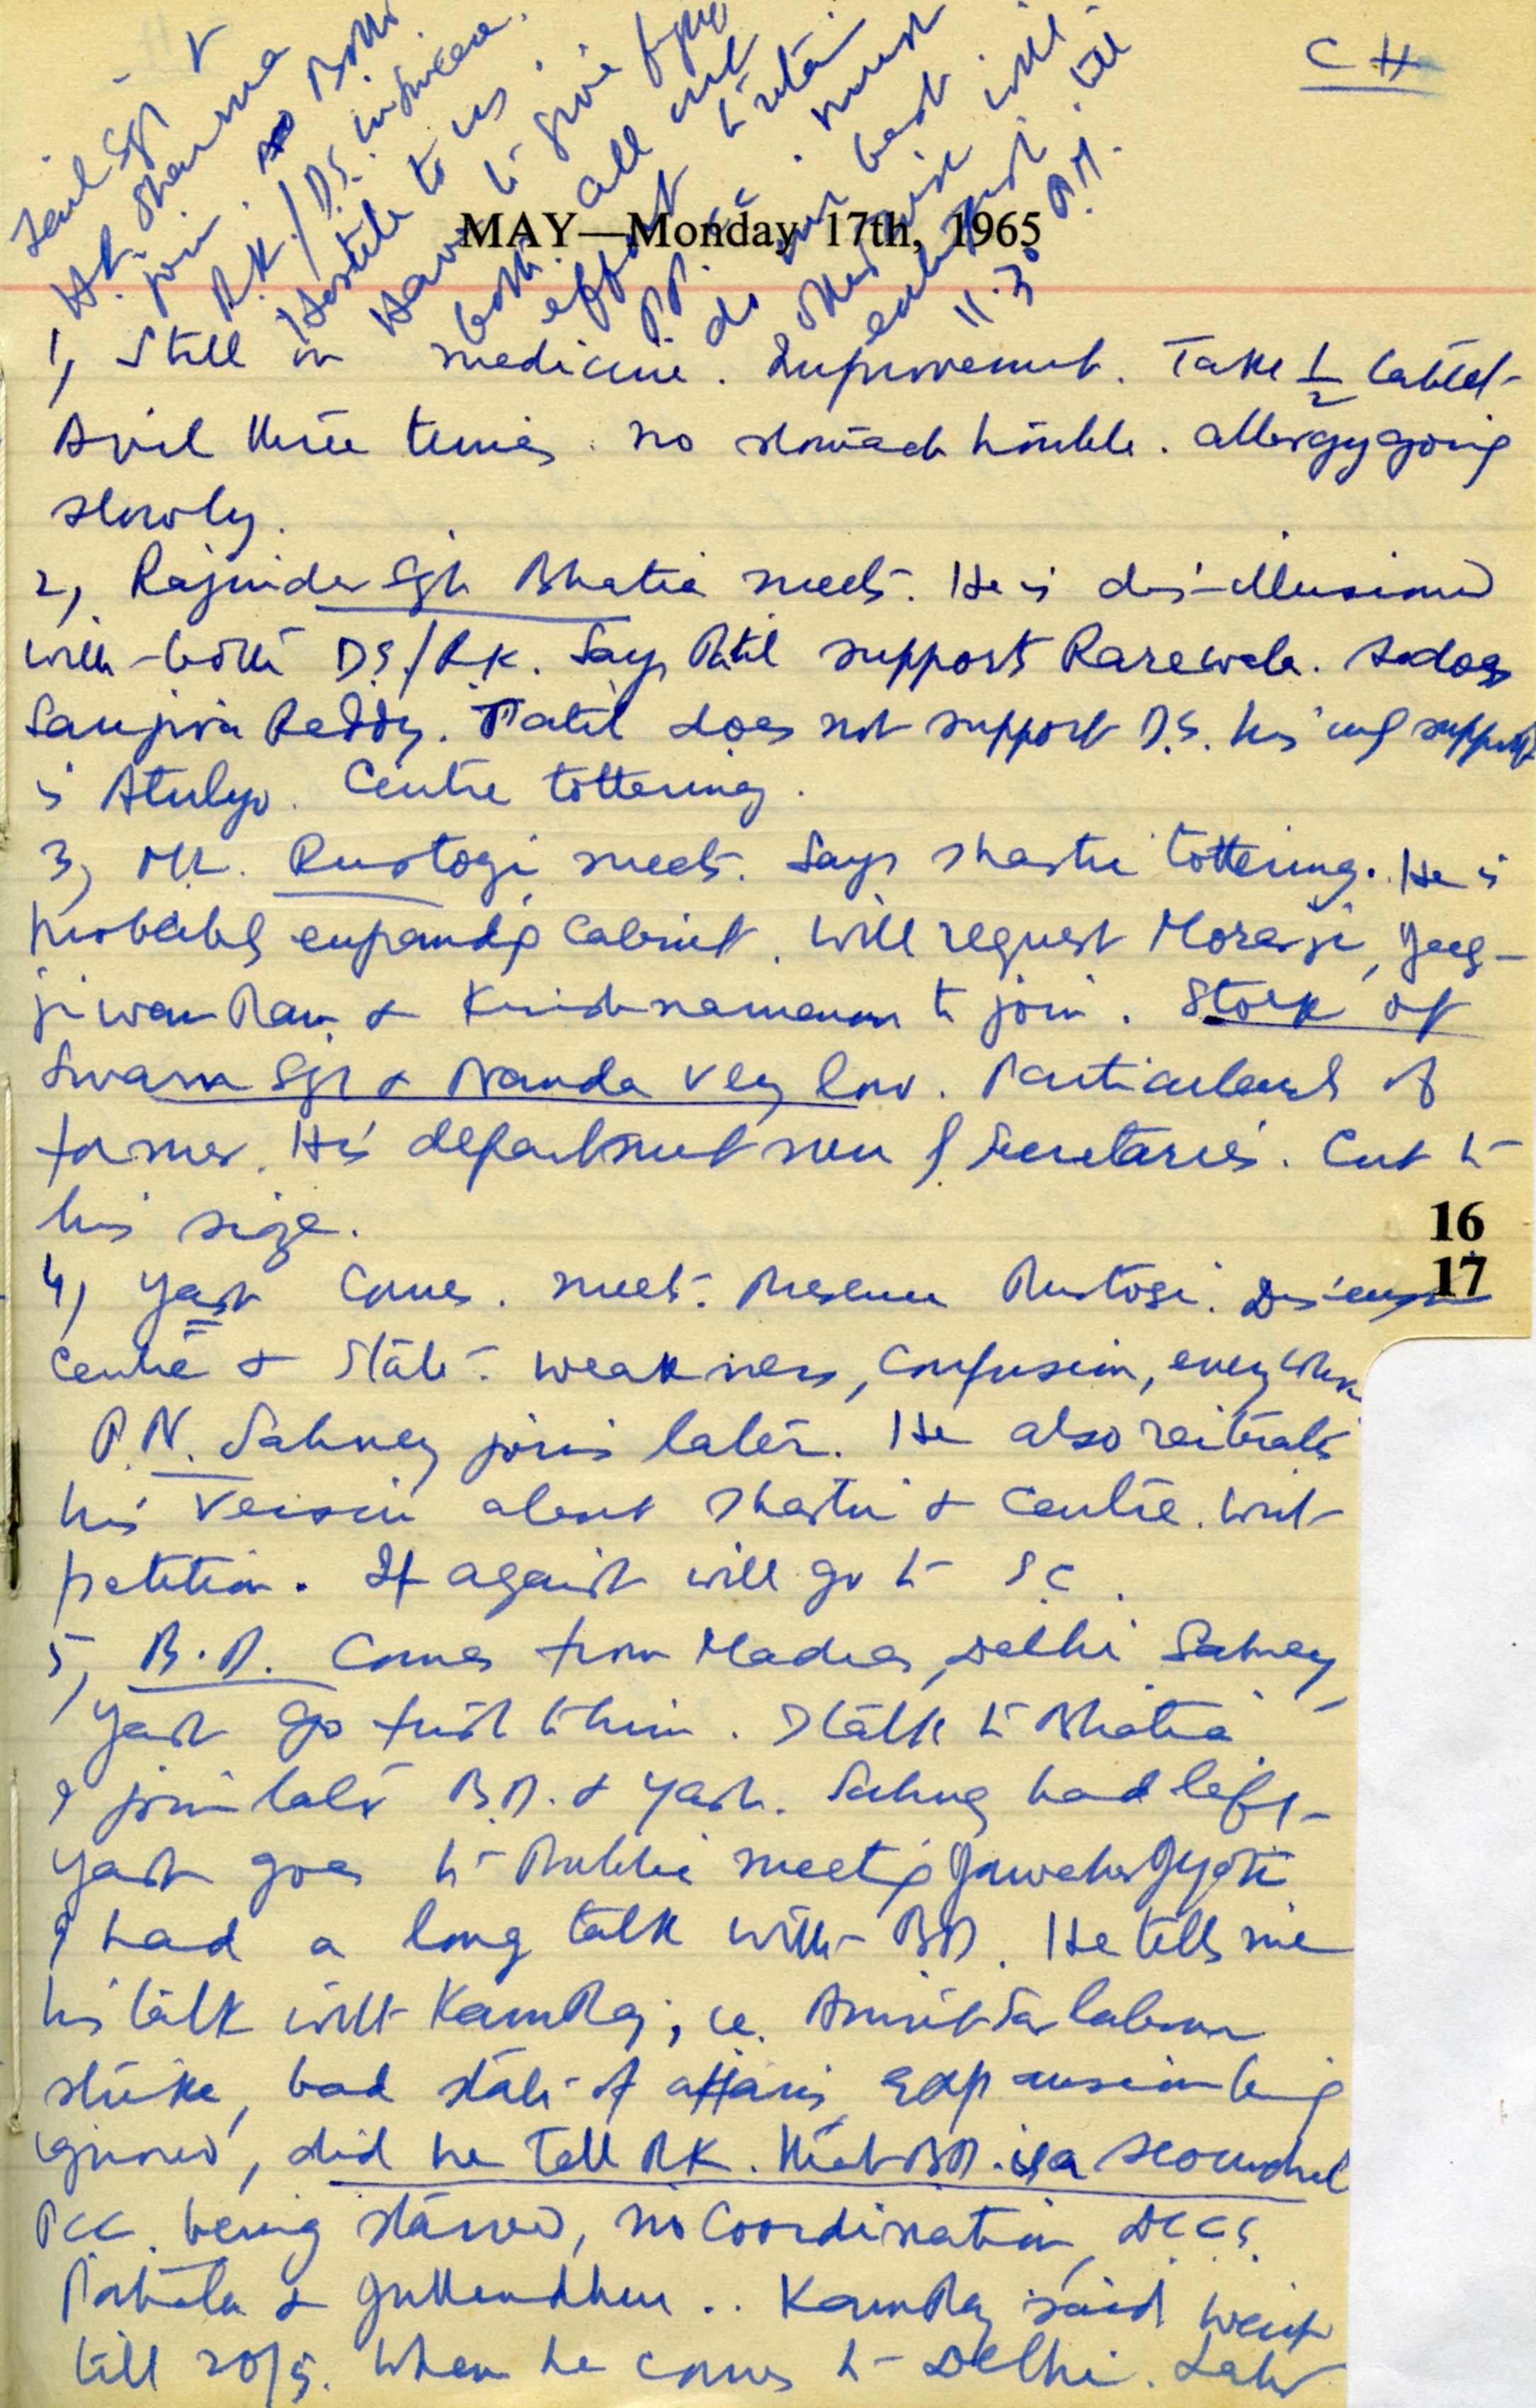 CH
MAY—Monday 17th, 1965
1, Still on medicine. Improvement. Take ½ tablet
Avil three times. No stomach trouble. allergy going
slowly.
2, Rajinder Sgh Bhatia meets. He is dis-illusioned
with both D.S./R.K. Says Patil supports Rarewala. So does
Sanjiva Reddy. Patil does not support D.S. his only support
is Atulya. Centre tottering.
3, Mr. Rustogi meets. Says Shastri tottering. He is
probably expanding Cabinet. Will request Morarji, Jag-
jiwan Ram & Krishnamenon to join. Stock of
Swarn Sgh & Nanda very low. Particularly of
former. His department run by Secretaries. Cut to
his size.
4, Yash comes. meets. Presence Rustogi. Discussion
Centre & State. weakness, confusion, everywhere
P.N. Sahney joins later. He also reiterates
his version about Shastri & Centre. Writ
petition. If against will go to S.C.
5, B.D. comes from Madras, Delhi. Sahney,
Yash go first to him. I talk to Bhatia
I join later B.D. & Yash. Sahney had left
Yash goes to Public meeting Jawahar Jyoti
I had a long talk with BD. He tells me
his talk with KamRaj, i.e. Amritsar labour
strike, bad state of affairs, expansion being
ignored, did he tell RK. that BD. is a scoundrel
PCC. being starved, no coordination, DCCs
Patiala & Jullundhur.. KamRaj said wait
till 20/5. When he comes to Delhi. Later
Sgh &
H.L. Sharma
join. Both
R.K./D.S. insincere.
Hostile to us.
Have to give fight
both all out
effort to retain
P.P.CC. must
do our best till
otherwise will
11.30 P.M.
16
17